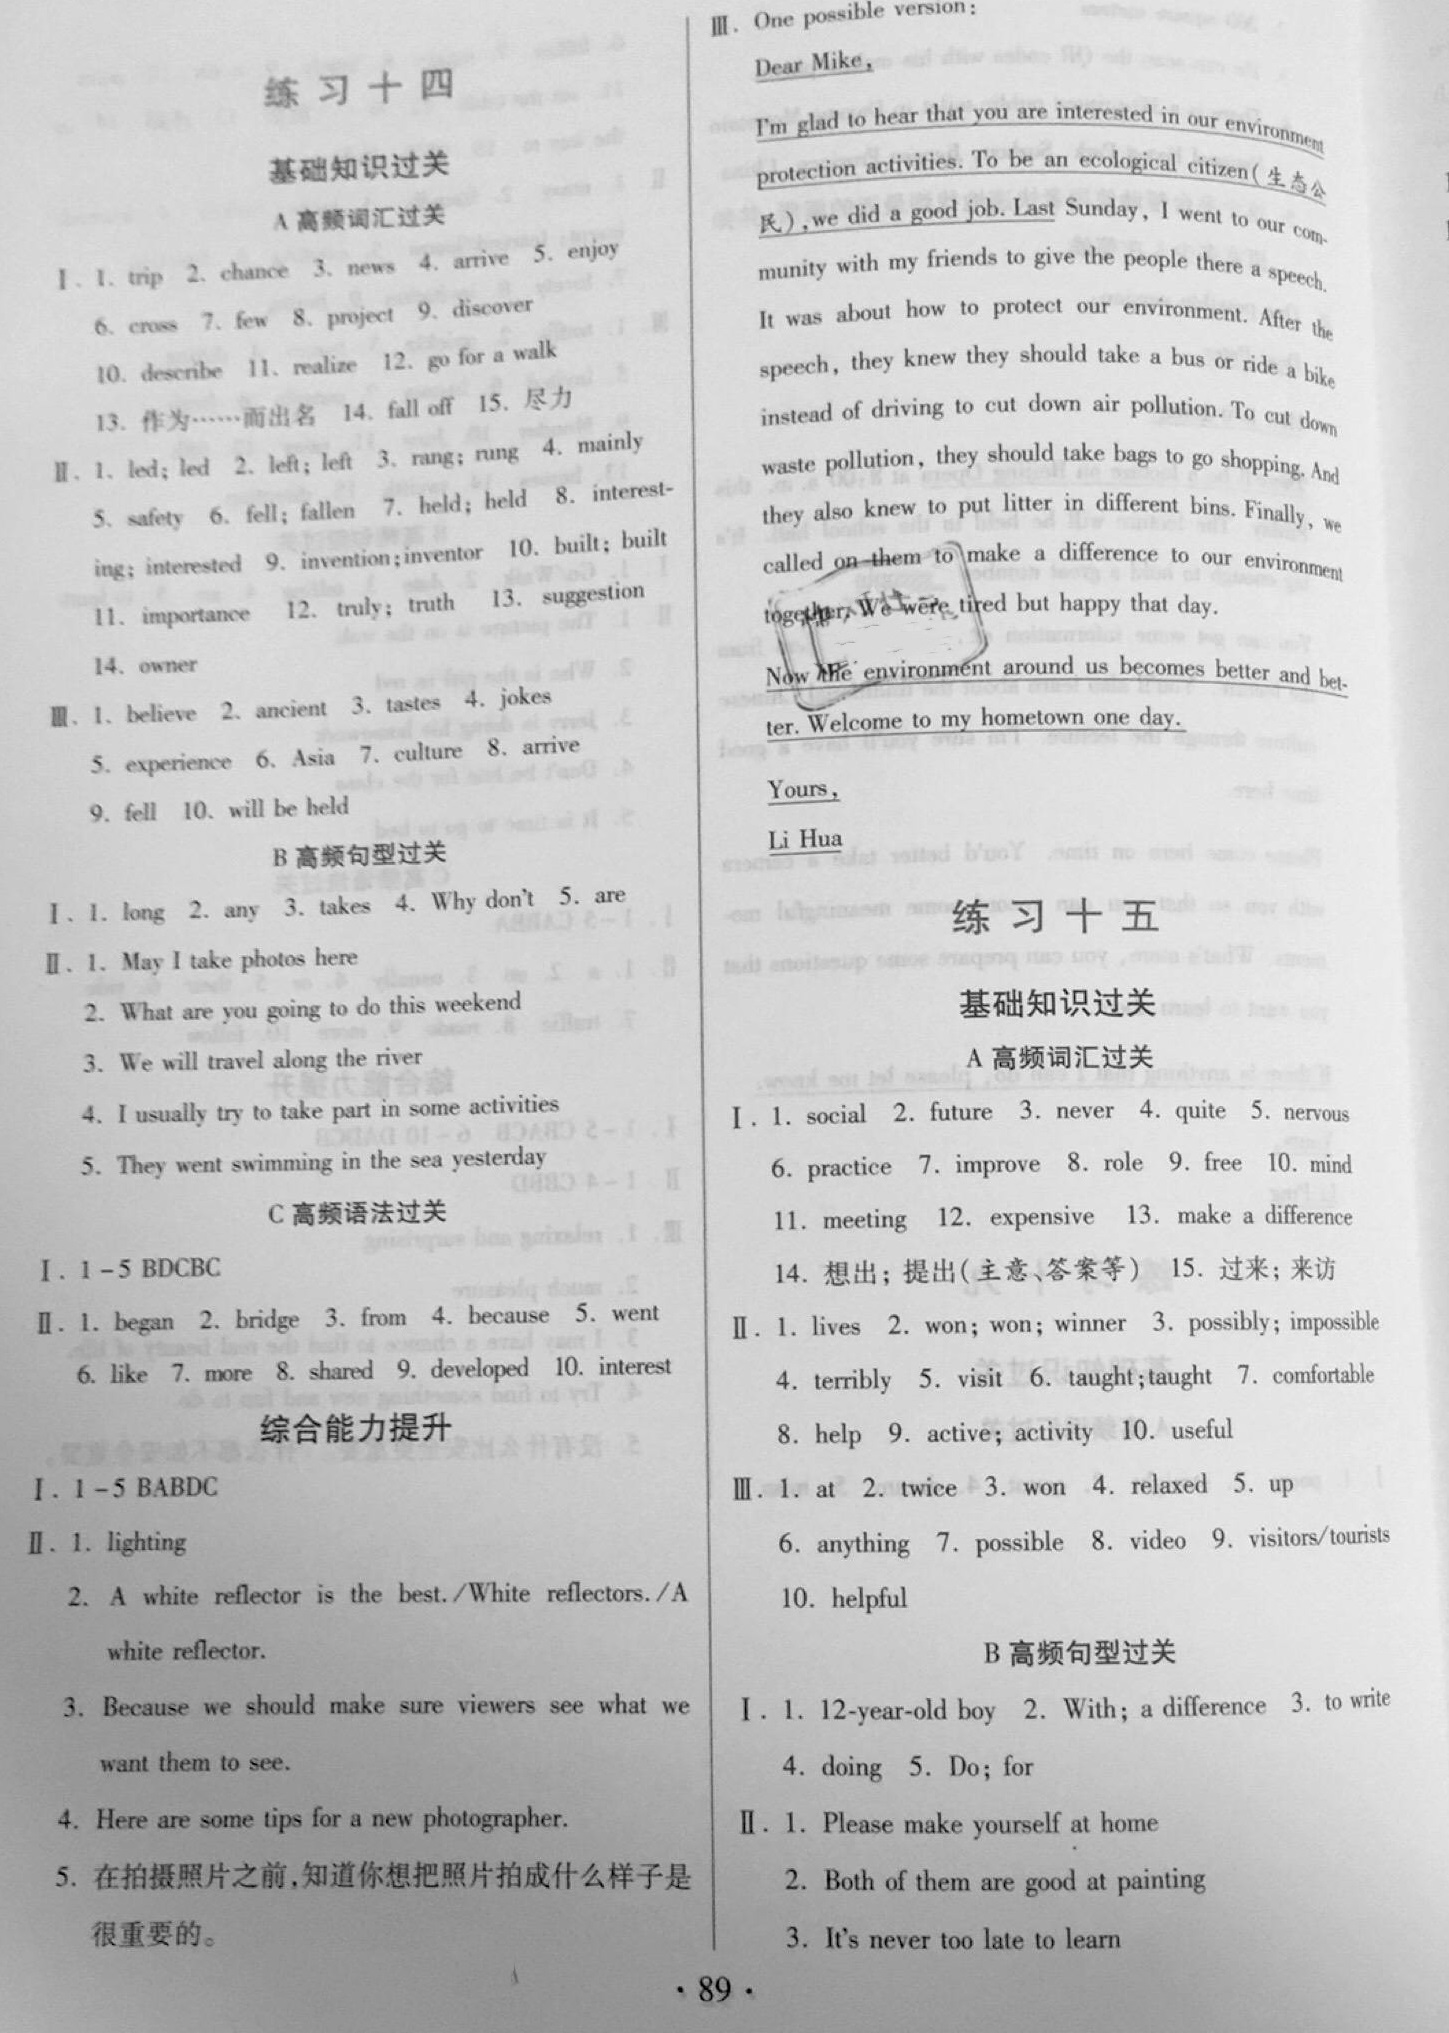 练习十四
基础知识过关
A 高频词汇过关
Ⅰ. 1. trip 2. chance 3. news 4. arrive 5. enjoy
6. cross 7. few 8. project 9. discover
10. describe 11. realize 12. go for a walk
13. 作为……而出名 14. fall off 15. 尽力
Ⅱ. 1. led; led 2. left; left 3. rang; rung 4. mainly
5. safety 6. fell; fallen 7. held; held 8. interest-
ing; interested 9. invention; inventor 10. built; built
11. importance 12. truly; truth 13. suggestion
14. owner
Ⅲ. 1. believe 2. ancient 3. tastes 4. jokes
5. experience 6. Asia 7. culture 8. arrive
9. fell 10. will be held
B 高频句型过关
Ⅰ. 1. long 2. any 3. takes 4. Why don't 5. are
Ⅱ. 1. May I take photos here
2. What are you going to do this weekend
3. We will travel along the river
4. I usually try to take part in some activities
5. They went swimming in the sea yesterday
C 高频语法过关
Ⅰ. 1-5 BDCBC
Ⅱ. 1. began 2. bridge 3. from 4. because 5. went
6. like 7. more 8. shared 9. developed 10. interest
综合能力提升
Ⅰ. 1-5 BABDC
Ⅱ. 1. lighting
2. A white reflector is the best./White reflectors./A
white reflector.
3. Because we should make sure viewers see what we
want them to see.
4. Here are some tips for a new photographer.
5. 在拍摄照片之前,知道你想把照片拍成什么样子是
很重要的。
Ⅲ. One possible version:
Dear Mike,
I'm glad to hear that you are interested in our environment
protection activities. To be an ecological citizen(生态公
民),we did a good job. Last Sunday, I went to our com-
munity with my friends to give the people there a speech.
It was about how to protect our environment. After the
speech, they knew they should take a bus or ride a bike
instead of driving to cut down air pollution. To cut down
waste pollution, they should take bags to go shopping. And
they also knew to put litter in different bins. Finally, we
called on them to make a difference to our environment
together. We were tired but happy that day.
Now the environment around us becomes better and bet-
ter. Welcome to my hometown one day.
Yours,
Li Hua
练习十五
基础知识过关
A 高频词汇过关
Ⅰ. 1. social 2. future 3. never 4. quite 5. nervous
6. practice 7. improve 8. role 9. free 10. mind
11. meeting 12. expensive 13. make a difference
14. 想出; 提出(主意、答案等) 15. 过来; 来访
Ⅱ. 1. lives 2. won; won; winner 3. possibly; impossible
4. terribly 5. visit 6. taught;taught 7. comfortable
8. help 9. active; activity 10. useful
Ⅲ. 1. at 2. twice 3. won 4. relaxed 5. up
6. anything 7. possible 8. video 9. visitors/tourists
10. helpful
B 高频句型过关
Ⅰ. 1. 12-year-old boy 2. With; a difference 3. to write
4. doing 5. Do; for
Ⅱ. 1. Please make yourself at home
2. Both of them are good at painting
3. It's never too late to learn
· 89 ·